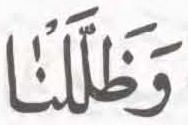 وَظَلَّلْنَا